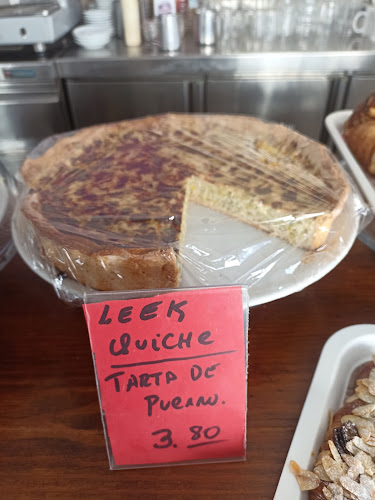 LEEK
QUICHE
TARTA DE
PUERRO.
3.80